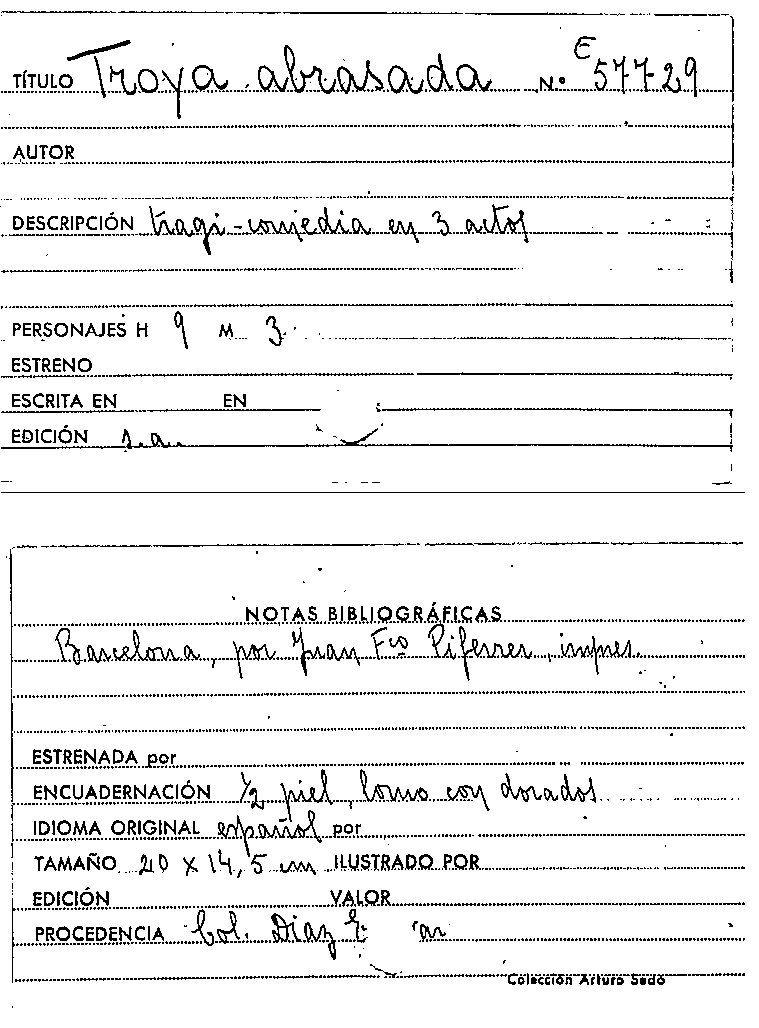 TÍTULO Troya abrasada N.º E 577-29
AUTOR
DESCRIPCIÓN tragi-comedia en 3 actos
PERSONAJES H 9 M 3
ESTRENO
ESCRITA EN EN
EDICIÓN s.a.
NOTAS BIBLIOGRÁFICAS
Barcelona, por Juan Fco Piferrer, impres.
ESTRENADA por
ENCUADERNACIÓN 1/2 piel, lomo con dorados
IDIOMA ORIGINAL español por
TAMAÑO 20 x 14,5 cm ILUSTRADO POR
EDICIÓN VALOR
PROCEDENCIA Col. Díaz
Colección Arturo Sedó